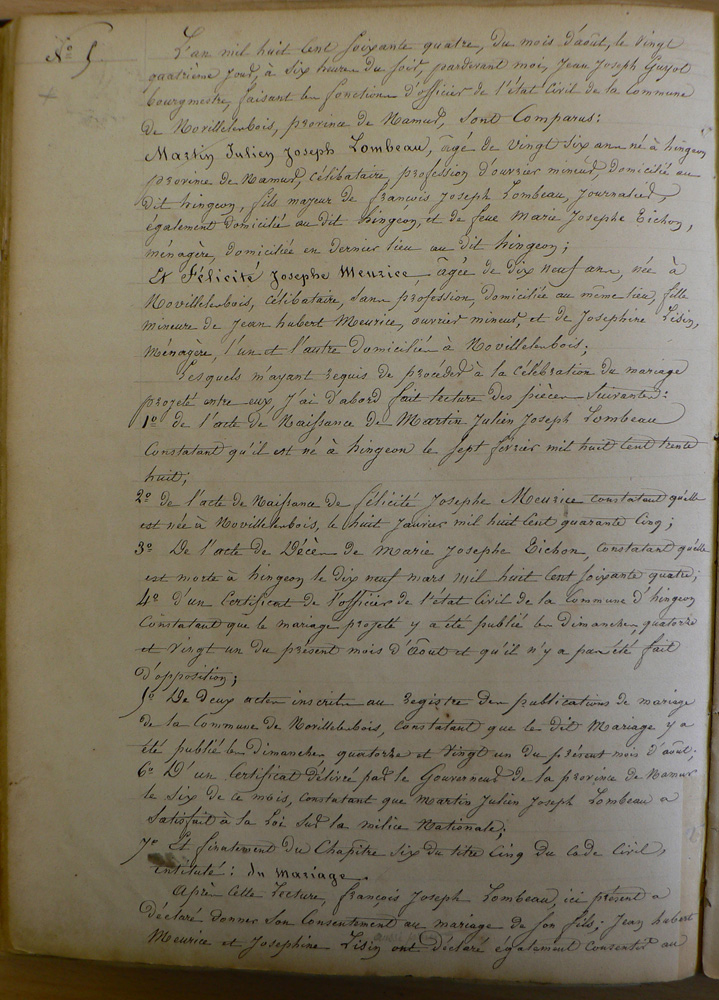 N° 5
L'an mil huit Cent soixante quatre, du mois d'août, le vingt
quatrième jour, à six heures du soir, pardevant moi, Jean Joseph Guyot
bourgmestre, faisant les fonctions d'officier de l'état Civil de la Commune
de Noville-les-bois, province de Namur, sont Comparus:
Martin Julien Joseph Lombeau, âgé de vingt six ans né à hingeon
province de Namur, célibataire, profession d'ouvrier mineur, domicilié au
dit hingeon, fils majeur de francois Joseph Lombeau, Journalier,
également domicilié au dit hingeon, et de feue Marie Josephe Eichon,
ménagère, domiciliée en dernier lieu au dit hingeon;
Et Félicité Josephe Meurice âgée de dix neuf ans, née à
Noville-les-bois, célibataire, sans profession, domiciliée au même lieu, fille
mineure de Jean hubert Meurice, ouvrier mineur, et de Josephine Lisin,
Ménagère, l'un et l'autre Domiciliés à Noville-les-bois;
Lesquels m'ayant requis de procéder à la célébration du mariage
projeté entre eux, J'ai d'abord fait lecture des pièces suivantes:
1° de l'acte de Naissance de Martin Julien Joseph Lombeau
Constatant qu'il est né à hingeon le sept février mil huit Cent trente
huit;
2° de l'acte de Naissance de félicité Josephe Meurice constatant qu'elle
est née à Noville-les-bois, le huit Janvier mil huit Cent quarante Cinq;
3° De l'acte de Décès de Marie Josephe Eichon, constatant qu'elle
est morte à hingeon le dix neuf mars mil huit Cent soixante quatre;
4° d'un Certificat de l'officier de l'état Civil de la Commune d'hingeon
Constatant que le mariage projeté y a été publié les dimanches quatorze
et vingt un du présent mois d'août et qu'il n'y a pas été fait
D'opposition;
5° De Deux actes inscrits au Registre des publications de mariage
de la Commune de Noville-les-bois, constatant que le dit Mariage y a
été publié les dimanches quatorze et vingt un du présent mois d'août;
6° D'un Certificat délivré par le Gouverneur de la province de Namur
le six de ce mois, constatant que Martin Julien Joseph Lombeau a
satisfait à la Loi sur la milice Nationale;
7° Et finalement du Chapitre six du titre Cinq du Code Civil,
intitulé: du Mariage.
Après Cette Lecture, françois Joseph Lombeau, ici présent a
déclaré donner son Consentement au mariage de son fils; Jean hubert
Meurice et Josephine Lisin ont déclaré également consentir au